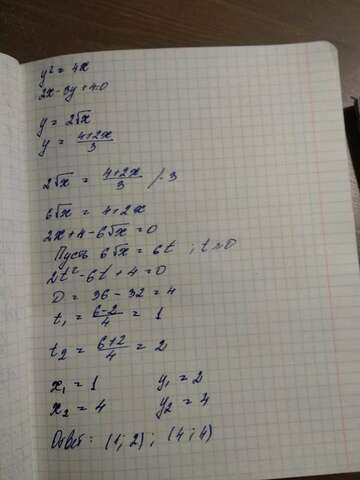 y² = 4x
2x - 3y + 4 = 0
y = 2√x
y = (4+2x)/3
2√x = (4+2x)/3 /·3
6√x = 4+2x
2x+4-6√x = 0
Пусть 6√x = 6t ; t≥0
2t² - 6t + 4 = 0
D = 36 - 32 = 4
t₁ = (6-2)/4 = 1
t₂ = (6+2)/4 = 2
x₁ = 1 y₁ = 2
x₂ = 4 y₂ = 4
Ответ: (1; 2) ; (4; 4)